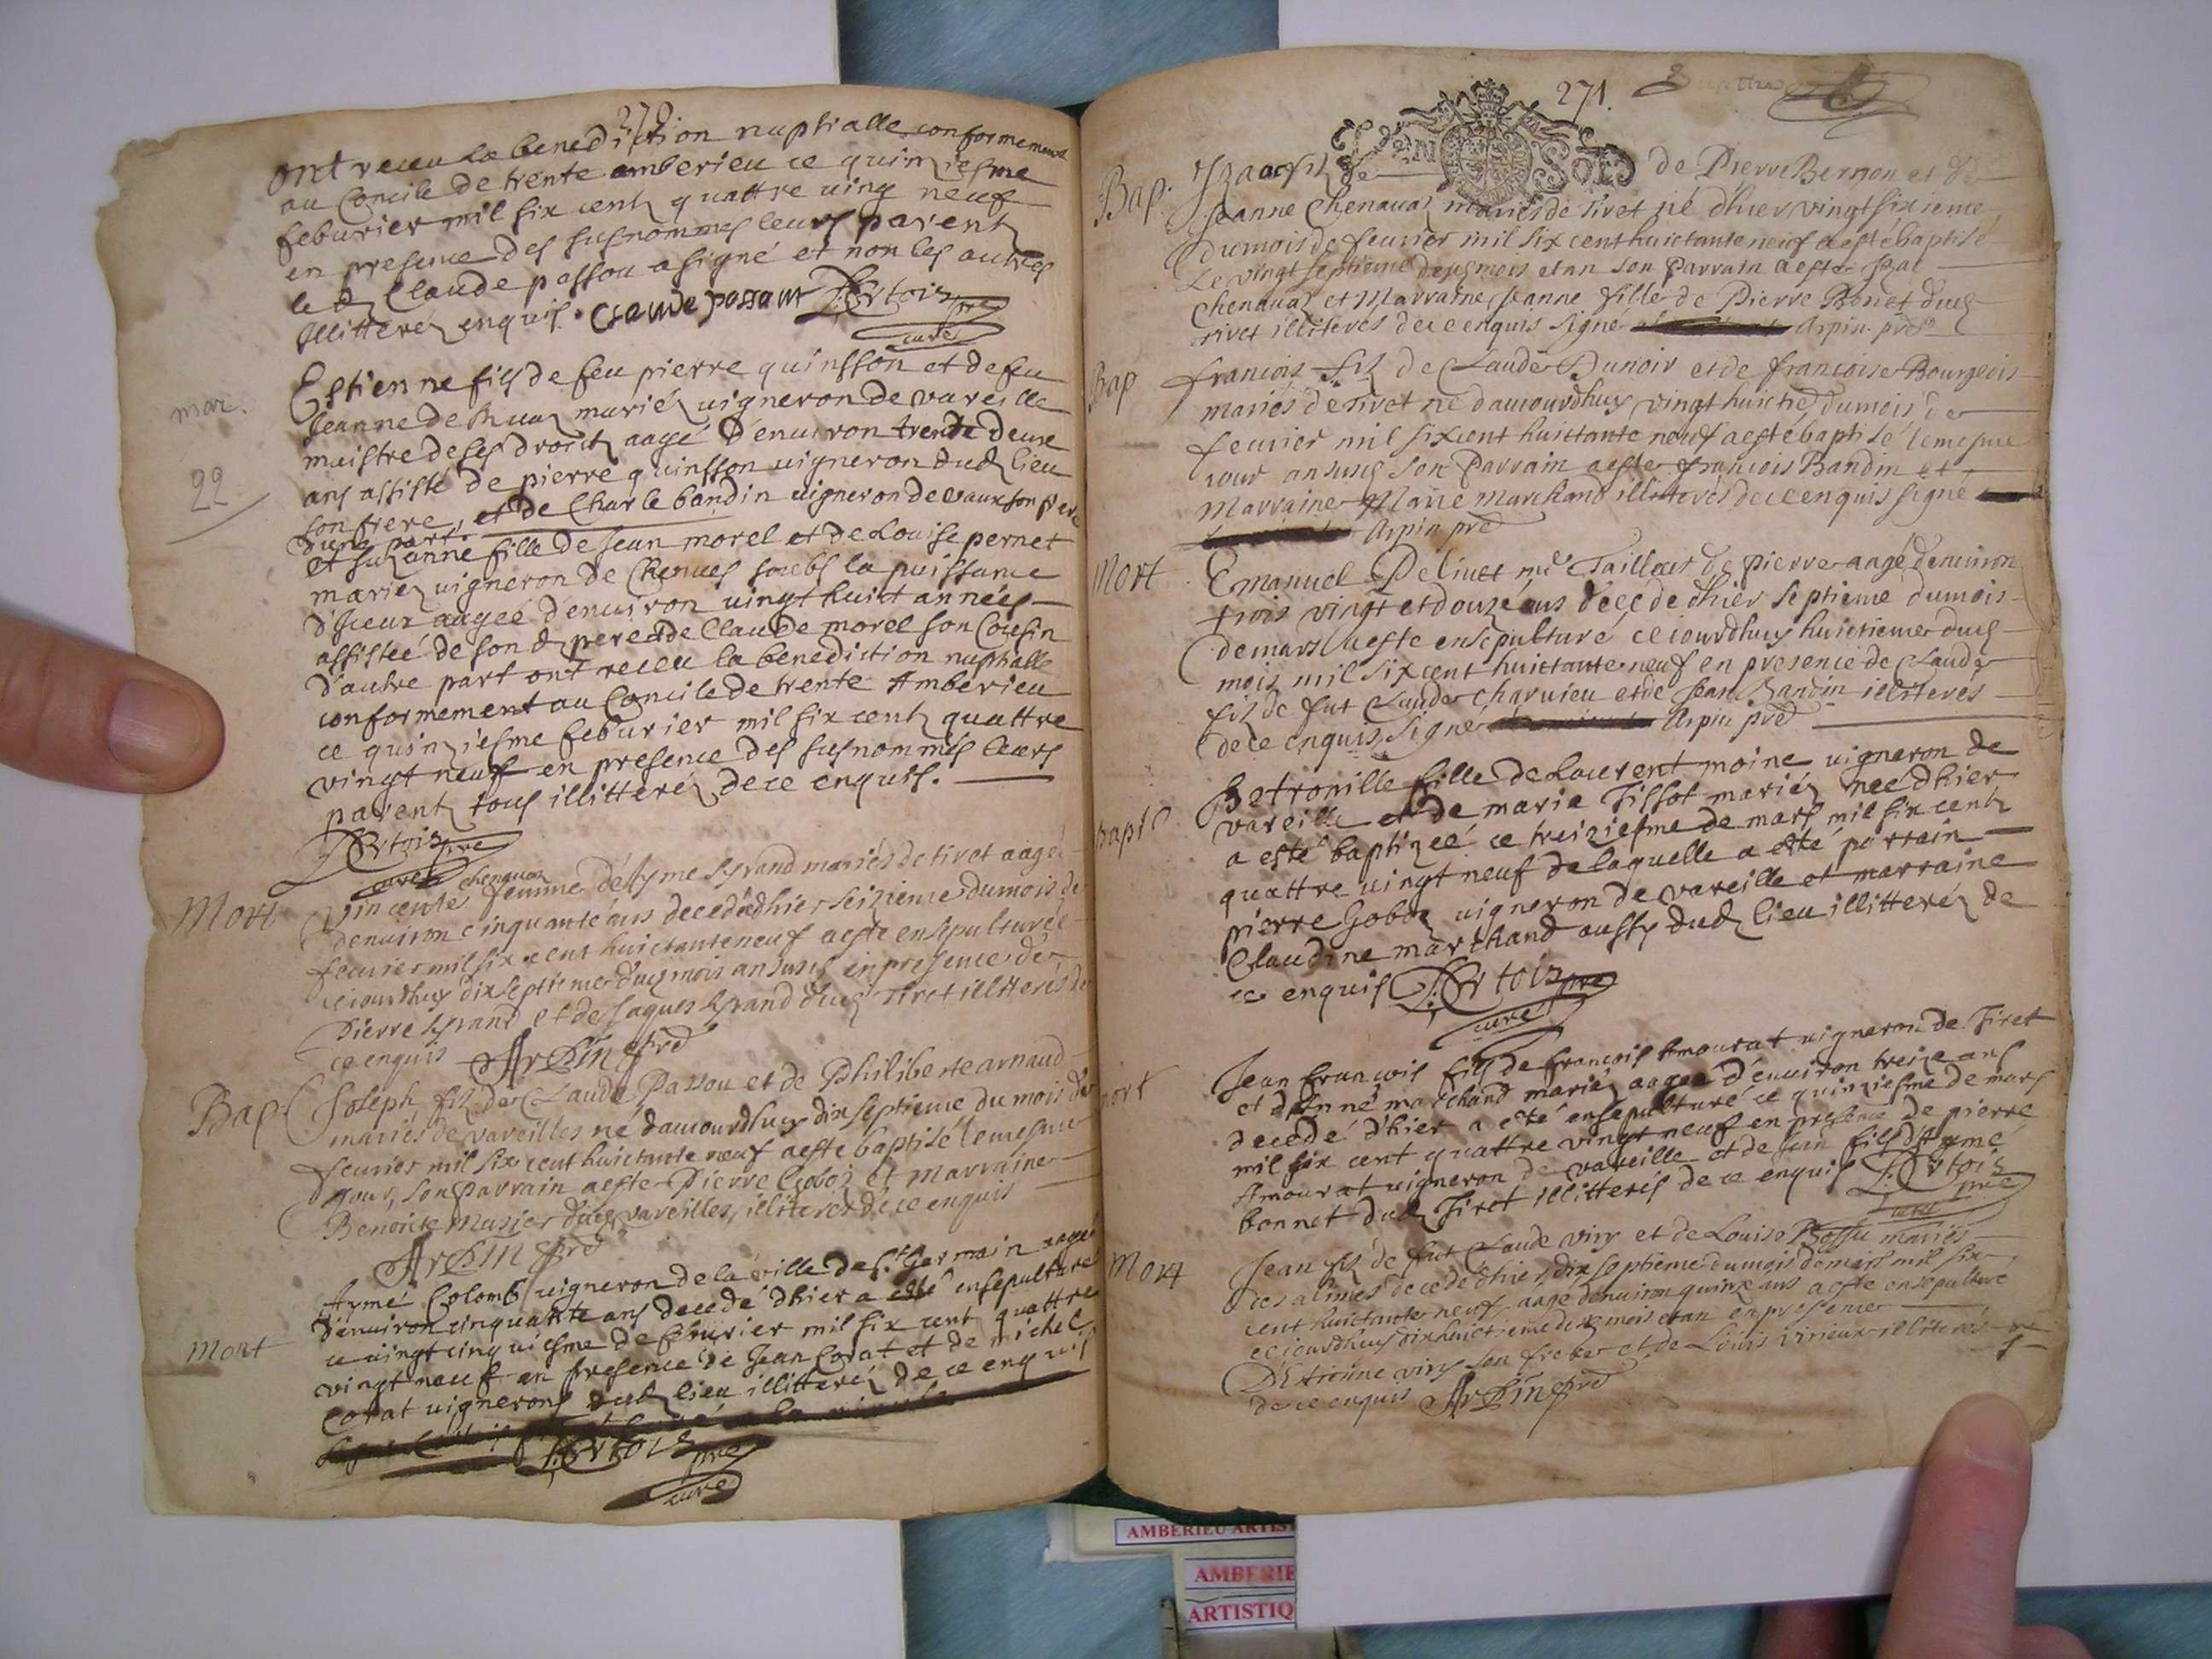 270
ont receu la benediction nuptialle conformement
au Concile de trente amberieu ce quinziesme
feburier mil six centz quattre uing neuf
en presence des susnommes leurs parentz
le dz Claude passou a signé et non les autres
illitterez enquis. Claude passaut D. Ertois pre
curé
mar.
22
Estienne fils de feu pierre quinsson et de feu
Jeanne de mariez uigneron de vareille
maistre de ses droictz aagé d'enuiron trente deux
ans assisté de pierre quinsson uigneron dudz lieu
son frere, et de Charle bandin uigneron de vaux son
d'une part.
et suzanne fille de Jean morel et de Louise pernet
mariez uigneron de soubs la puissance
d'iceux aageé d'enuiron uingt huict années
assisteé de son dz pere et de Claude morel son Cousin
d'autre part ont receu la benediction nuptialle
conformement au Concile de trente Amberieu
ce quinziesme feburier mil six centz quattre
vingt neuf en presence des susnommés leurs
parentz tous illitterez de ce enquis.
D. Ertois pre
curé
Mort
chenauaz
Vincente femme d'Ayme Lyrand mariés de tiret aageé
denuiron cinquante ans decedée dhier seizieme du mois de
feurier mil six cent huictante neuf a esté ensepulturée
ceiourdhuy dixseptieme dud mois an susd en presence de
Pierre Lyrand et de Jaques Lyrand dud Tiret illiterés de
ce enquis Arpin pre
Bap.
Joseph filz de Claude Passou et de Philiberte arnaud
mariés de vareilles né daujourdhuy dix septieme du mois de
feurier mil six cent huictante neuf a esté baptisé le mesme
jour, son parrain a esté Pierre Goboz et marraine
Benoite Musier dud vareilles, illiterés de ce enquis
Arpin pre
mort
Aymé Colomb uigneron de la ville de st Germain aagé
d'enuiron cinquante ans decedé dhier a esté ensepulturé
ce uingt cinquiesme de feburier mil six cent quattre
vingt neuf en presence de Jean Corat et de michel
Corat uignerons dudz lieu illitterez de ce enquis
D. Ertois pre
curé
271.
Bap.
Izaac filz de Pierre Bernon et de
Jeanne Chenauaz mariés de Tiret né dhier vingt sixieme
du mois de feurier mil six cent huictante neuf a esté baptisé
le vingt septieme desd mois et an son Parrain a esté Izac
Chenauaz et Marraine Jeanne fille de Pierre Bonet dud
tiret illiterés de ce enquis signé Arpin pre
Bap
francois filz de Claude Dunoir et de francoise Bourgeois
mariés de Tiret né daujourdhuy vingt huictie du mois de
feurier mil six cent huictante neuf a esté baptisé le mesme
jour an susd son Parrain a esté francois Bandin et
Marraine Marie Marchand illiterés de ce enquis signé
Arpin pre
Mort
Emanuel me Tailleur de pierre aagé denuiron
trois vingt et douze ans decede dhier septieme du mois
de mars a esté ensepulturé ceiourdhuy huictieme dud
mois mil six cent huictante neuf en presence de Claude
filz de fut Claude Charuieu et de Jean Bandin illiterés
de ce enquis signé Arpin pre
bapt
Petronille fille de Laurent moine uigneron de
vareille et de marie Tissot mariéz neé dhier
a esté baptizeé ce treiziesme de mars mil six centz
quattre uingt neuf de laquelle a esté parrain
pierre Goboz uigneron de vareille et marraine
Claudine marchand aussy dudz lieu illitteréz de
ce enquis D. Ertois pre
curé
mort
Jean francois fils de francois Amourat uigneron de Tiret
et d'Anne marchand mariéz aageé d'enuiron treize ans
decedé d'hier a esté ensepulturé ce quinziesme de mars
mil six cent quattre vingt neuf en presence de pierre
Amourat uigneron de vareille et de Jean fils d'Aymé
bonnet dudz Tiret illitterés de ce enquis D. Ertois
pre
curé
Mort
Jean filz de fut Claude viry et de Louise Bossu mariés
decedé dhier dix septieme du mois de mars mil six
cent huictante neuf, aagé denuiron quinze ans a esté ensepulturé
ceiourdhuy dix huictieme desd mois et an en presence
D'Etienne viry son frere et de Louis virieux illiterés
de ce enquis Arpin pre
AMBERIEU ARTIST
AMBERIE
ARTISTIQ